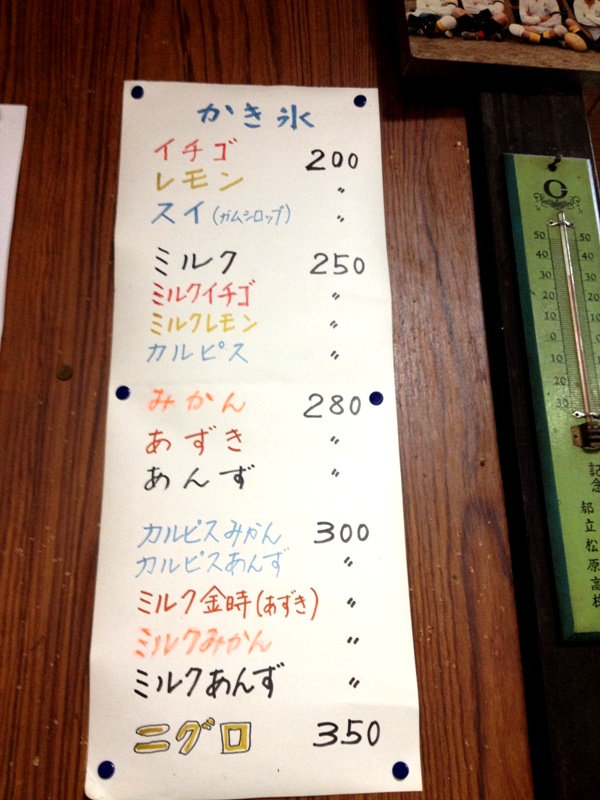 かき氷
イチゴ 200
レモン 〃
スイ(ガムシロップ) 〃
ミルク 250
ミルクイチゴ 〃
ミルクレモン 〃
カルピス 〃
みかん 280
あずき 〃
あんず 〃
カルピスみかん 300
カルピスあんず 〃
ミルク金時(あずき) 〃
ミルクみかん 〃
ミルクあんず 〃
ニグロ 350
50 50
40 40
30 30
20 20
10 10
0 0
10 10
20 20
30
記念
都立松原高校